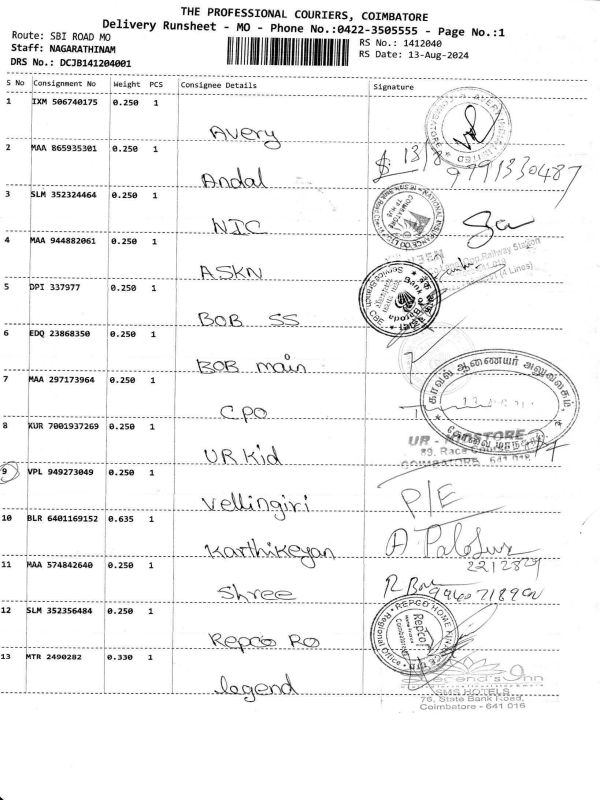 THE PROFESSIONAL COURIERS, COIMBATORE
Delivery Runsheet - MO - Phone No.:0422-3505555 - Page No.:1
Route: SBI ROAD MO
RS No.: 1412040
Staff: NAGARATHINAM
RS Date: 13-Aug-2024
DRS No.: DCJB141204001
S No Consignment No Weight PCS Consignee Details Signature
1 IXM 506740175 0.250 1
Avery
2 MAA 865935301 0.250 1
13/8
Andal
3 SLM 352324464 0.250 1
NIC
4 MAA 944882061 0.250 1
Railway Station
ASKN
(4 Lines)
5 DPI 337977 0.250 1
Service Branch
Bank of Baroda
CBE
BOB SS
6 EDQ 23868350 0.250 1
BOB main
7 MAA 297173964 0.250 1
காவல் ஆணையர் அலுவலகம்,
CPO
8 KUR 7001937269 0.250 1
UR - STORE
89, Race
COIMBATORE - 641 018
UR Kid
9 VPL 949273049 0.250 1
P/E
Vellingiri
10 BLR 6401169152 0.635 1
Karthikeyan
11 MAA 574842640 0.250 1
Shree
12 SLM 352356484 0.250 1
REPCO HOME FINANCE
Regional Office
Repco
Coimbatore
Repco RO
13 MTR 2490282 0.330 1
legend
SMS HOTELS
76, State Bank Road,
Coimbatore - 641 016